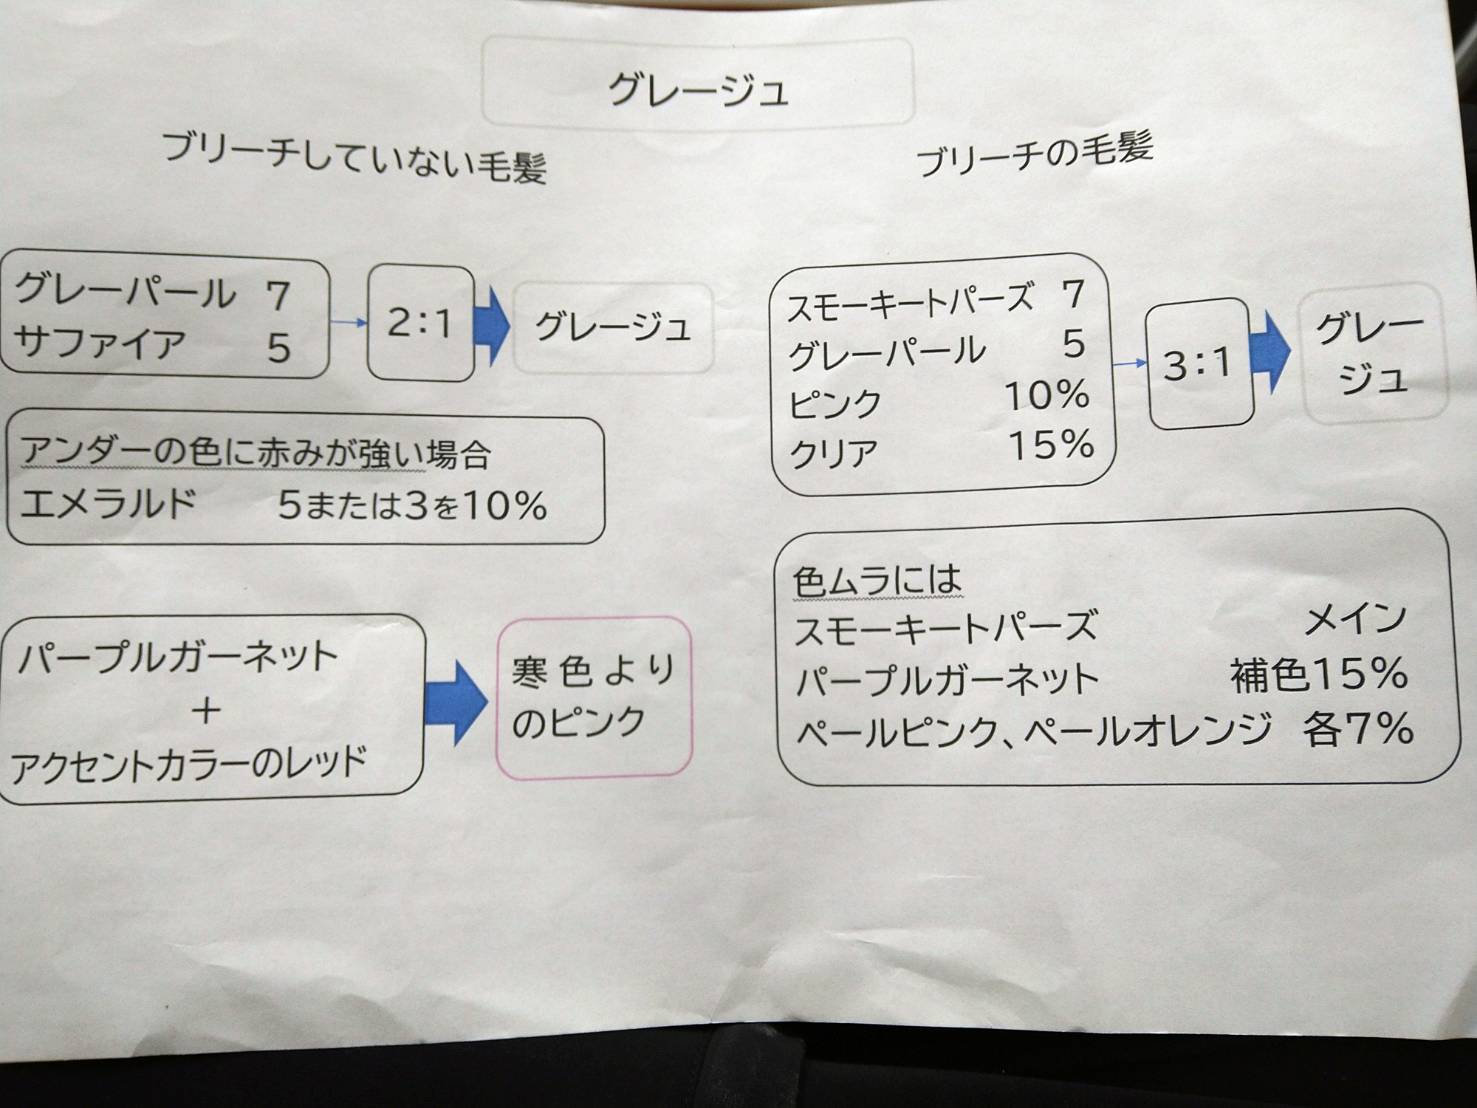 グレージュ
ブリーチしていない毛髪
グレーパール 7
サファイア 5
2:1
グレージュ
アンダーの色に赤みが強い場合
エメラルド 5または3を10%
パープルガーネット
+
アクセントカラーのレッド
寒色より
のピンク
ブリーチの毛髪
スモーキートパーズ 7
グレーパール 5
ピンク 10%
クリア 15%
3:1
グレー
ジュ
色ムラには
スモーキートパーズ メイン
パープルガーネット 補色15%
ペールピンク、ペールオレンジ 各7%